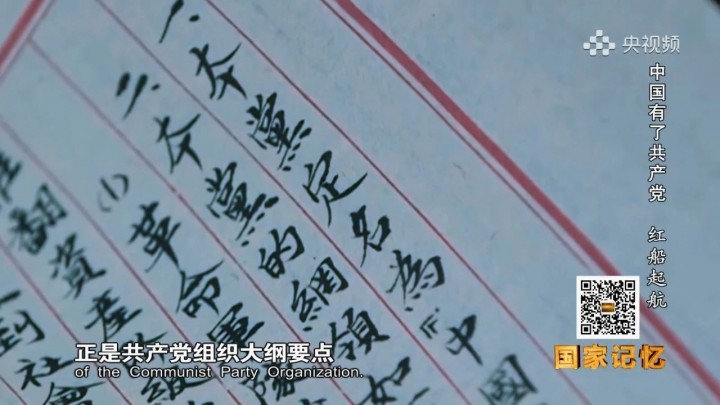 央视频
中国有了共产党 红船起航
一、本黨定名為『中國
二、本黨的綱領如
(1)革命軍隊
翻資產
到社會
国家记忆
正是共产党组织大纲要点
of the Communist Party Organization.